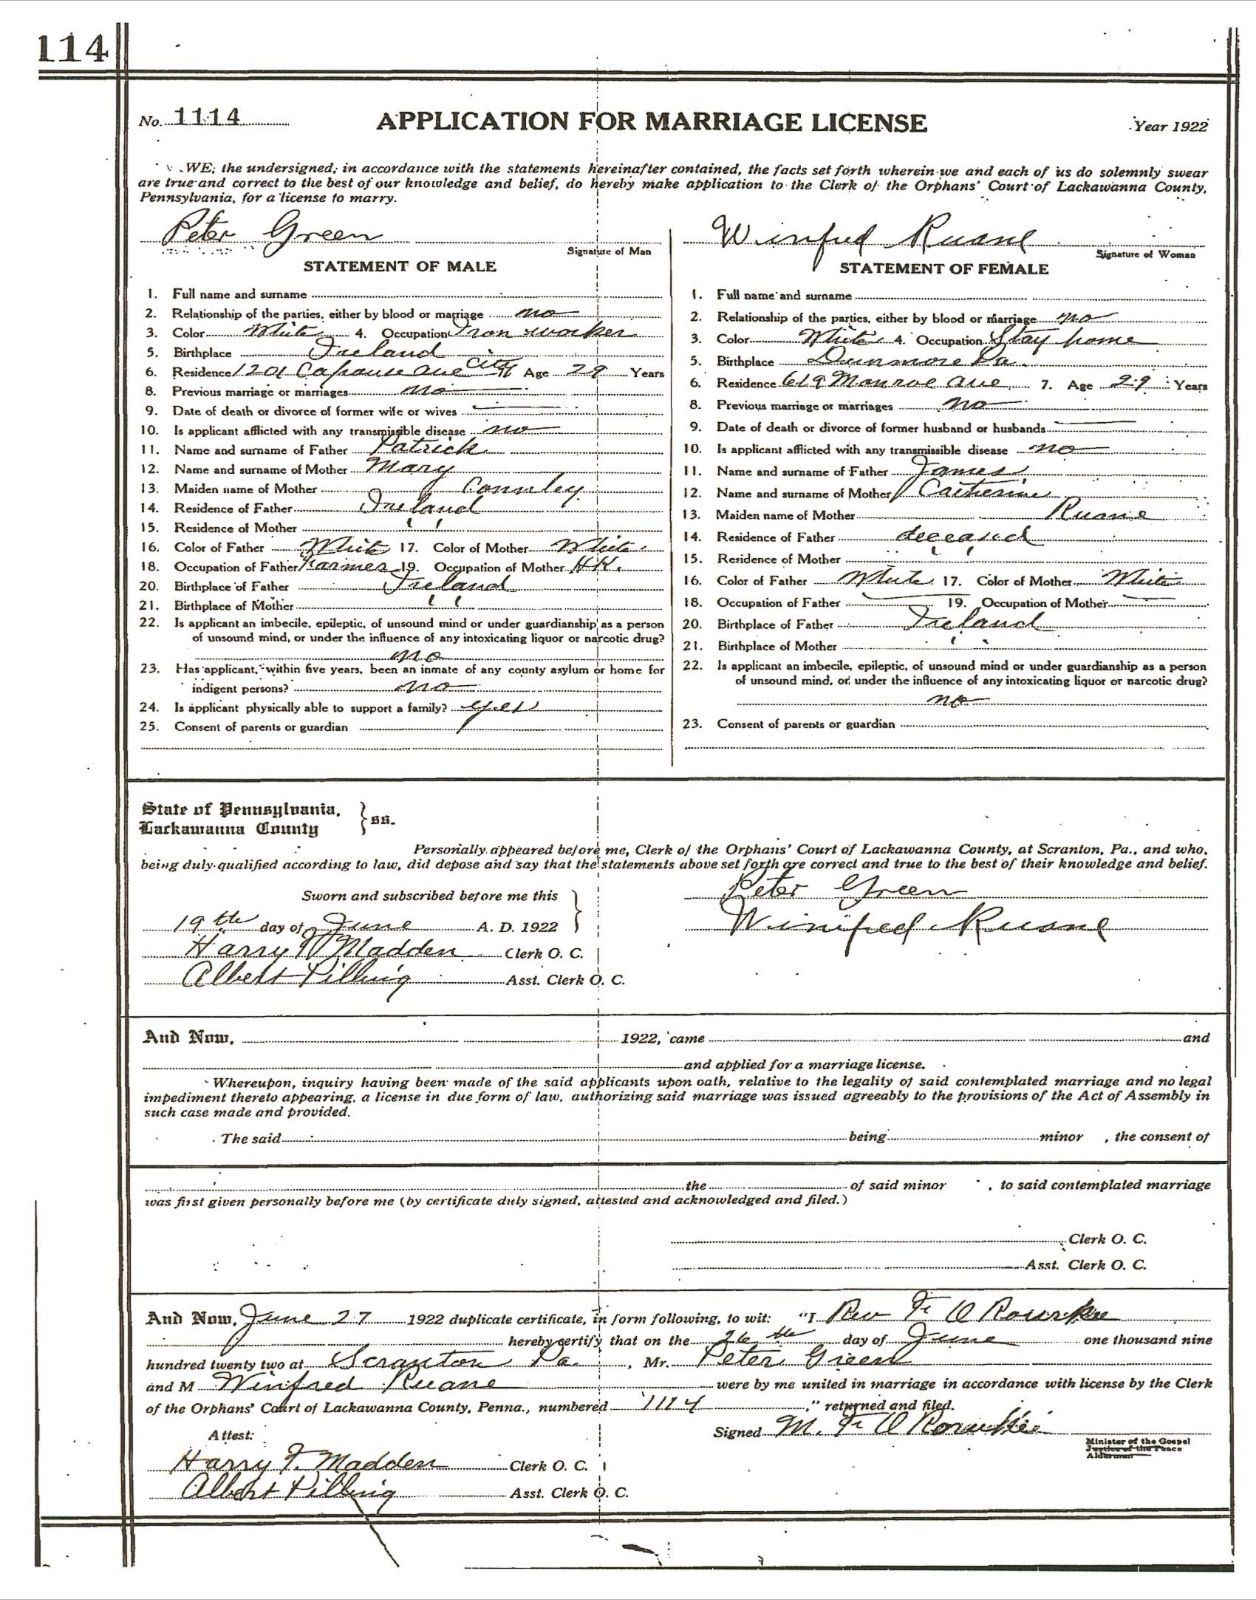 114
No. 1114 APPLICATION FOR MARRIAGE LICENSE Year 1922
WE, the undersigned, in accordance with the statements hereinafter contained, the facts set forth wherein we and each of us do solemnly swear
are true and correct to the best of our knowledge and belief, do hereby make application to the Clerk of the Orphans' Court of Lackawanna County,
Pennsylvania, for a license to marry.
Peter Green
Signature of Man
STATEMENT OF MALE
1. Full name and surname
2. Relationship of the parties, either by blood or marriage no
3. Color White 4. Occupation Iron worker
5. Birthplace Ireland
6. Residence 1201 Capouse ave city Age 29 Years
8. Previous marriage or marriages no
9. Date of death or divorce of former wife or wives
10. Is applicant afflicted with any transmissible disease no
11. Name and surname of Father Patrick
12. Name and surname of Mother Mary
13. Maiden name of Mother Connley
14. Residence of Father Ireland
15. Residence of Mother " "
16. Color of Father White 17. Color of Mother White
18. Occupation of Father Farmer 19. Occupation of Mother H.K.
20. Birthplace of Father Ireland
21. Birthplace of Mother " "
22. Is applicant an imbecile, epileptic, of unsound mind or under guardianship as a person
of unsound mind, or under the influence of any intoxicating liquor or narcotic drug?
no
23. Has applicant, within five years, been an inmate of any county asylum or home for
indigent persons? no
24. Is applicant physically able to support a family? yes
25. Consent of parents or guardian
Winifred Ruane
Signature of Woman
STATEMENT OF FEMALE
1. Full name and surname
2. Relationship of the parties, either by blood or marriage no
3. Color White 4. Occupation Stay home
5. Birthplace Dunmore Pa.
6. Residence 619 Monroe ave 7. Age 29 Years
8. Previous marriage or marriages no
9. Date of death or divorce of former husband or husbands
10. Is applicant afflicted with any transmissible disease no
11. Name and surname of Father James
12. Name and surname of Mother Catherine
13. Maiden name of Mother Ruane
14. Residence of Father deceased
15. Residence of Mother " "
16. Color of Father White 17. Color of Mother White
18. Occupation of Father 19. Occupation of Mother
20. Birthplace of Father Ireland
21. Birthplace of Mother " "
22. Is applicant an imbecile, epileptic, of unsound mind or under guardianship as a person
of unsound mind, or under the influence of any intoxicating liquor or narcotic drug?
no
23. Consent of parents or guardian
State of Pennsylvania,
Lackawanna County } ss.
Personally appeared before me, Clerk of the Orphans' Court of Lackawanna County, at Scranton, Pa., and who,
being duly qualified according to law, did depose and say that the statements above set forth are correct and true to the best of their knowledge and belief.
Sworn and subscribed before me this
19th day of June A. D. 1922
Harry F Madden Clerk O. C.
Albert Pilling Asst. Clerk O. C.
Peter Green
Winifred Ruane
And Now, 1922, came and
and applied for a marriage license.
Whereupon, inquiry having been made of the said applicants upon oath, relative to the legality of said contemplated marriage and no legal
impediment thereto appearing, a license in due form of law, authorizing said marriage was issued agreeably to the provisions of the Act of Assembly in
such case made and provided.
The said being minor , the consent of
the of said minor , to said contemplated marriage
was first given personally before me (by certificate duly signed, attested and acknowledged and filed.)
Clerk O. C.
Asst. Clerk O. C.
And Now, June 27 1922 duplicate certificate, in form following, to wit: "I Rev Fr O Rourke
hereby certify that on the 26th day of June one thousand nine
hundred twenty two at Scranton Pa. , Mr. Peter Green
and M Winfred Ruane were by me united in marriage in accordance with license by the Clerk
of the Orphans' Court of Lackawanna County, Penna., numbered 1114 ," returned and filed.
Attest: Signed M. Fr O Rourke
Minister of the Gospel
Justice of the Peace
Alderman
Harry F. Madden Clerk O. C.
Albert Pilling Asst. Clerk O. C.